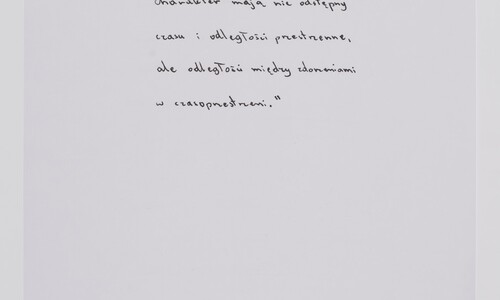 charakter mają nie odstępny
czasu i odległości przestrzenne,
ale odległość między zdarzeniami
w czasoprzestrzeni."